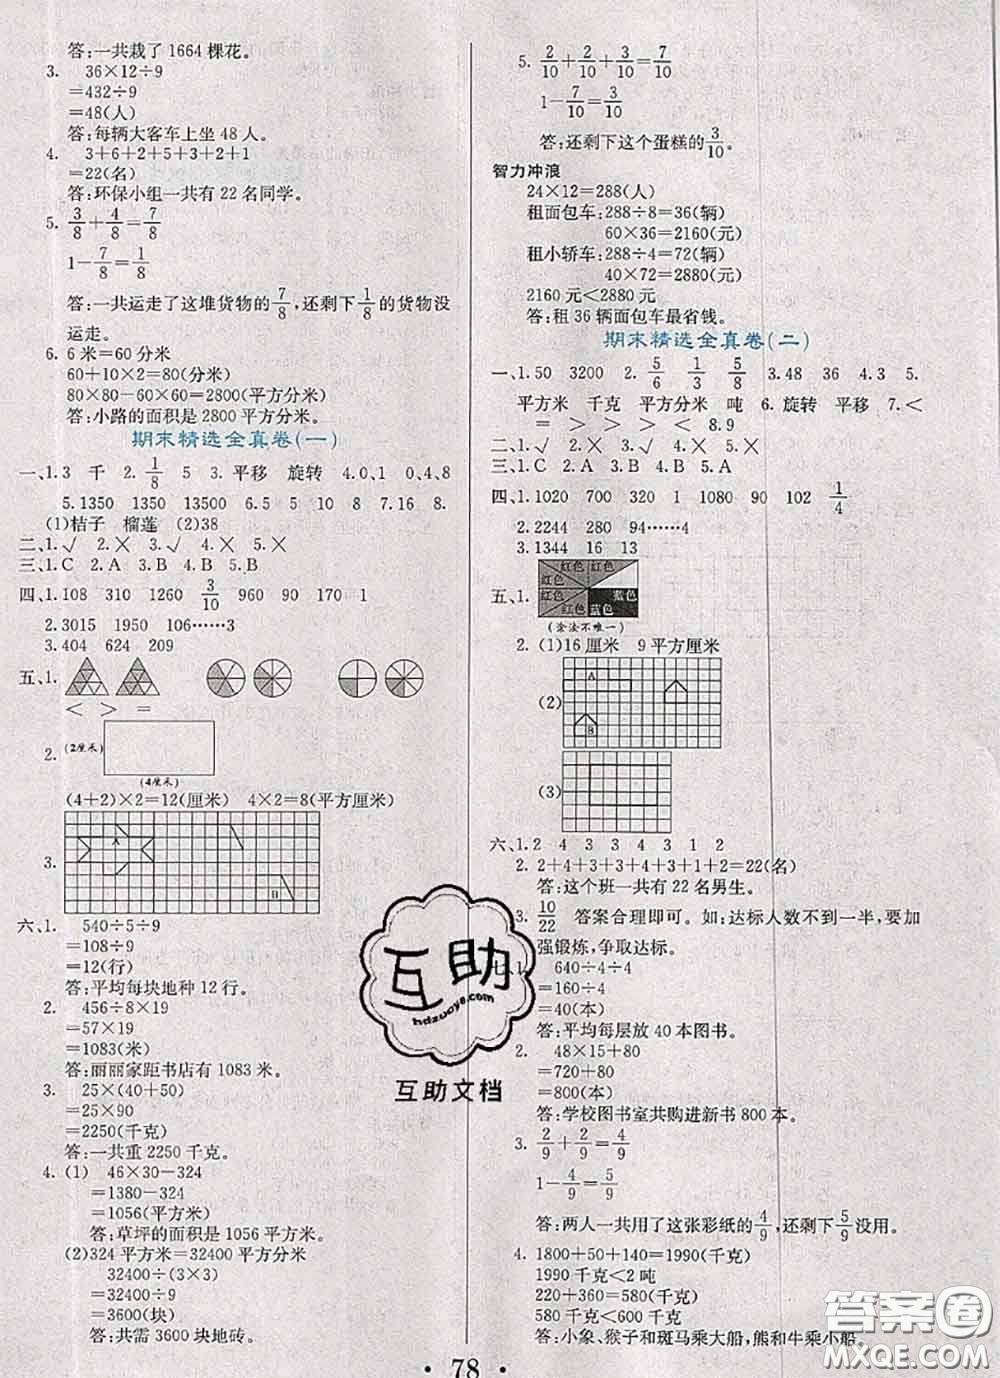 答:一共栽了 1664 棵花。
3. 36×12÷9
=432÷9
=48(人)
答:每辆大客车上坐 48 人。
4. 3+6+2+5+3+2+1
=22(名)
答:环保小组一共有 22 名同学。
5. 3/8+4/8=7/8
1-7/8=1/8
答:一共运走了这堆货物的 7/8,还剩下 1/8 的货物没
运走。
6. 6 米=60 分米
60+10×2=80(分米)
80×80-60×60=2800(平方分米)
答:小路的面积是 2800 平方分米。
期末精选全真卷(一)
一、1.3 千 2. 1/8 5 3.平移 旋转 4.0,1 0,4,8
5.1350 1350 13500 6.5 5 10 8 7.16 8.
(1)桔子 榴莲 (2)38
二、1.√ 2.× 3.√ 4.× 5.×
三、1.C 2.A 3.B 4.B 5.B
四、1.108 310 1260 3/10 960 90 170 1
2.3015 1950 106……3
3.404 624 209
五、1.
< > =
2. (2厘米)
(4厘米)
(4+2)×2=12(厘米) 4×2=8(平方厘米)
3.
A
B
六、1. 540÷5÷9
=108÷9
=12(行)
答:平均每块地种 12 行。
2. 456÷8×19
=57×19
=1083(米)
答:丽丽家距书店有 1083 米。
3. 25×(40+50)
=25×90
=2250(千克)
答:一共重 2250 千克。
4.(1) 46×30-324
=1380-324
=1056(平方米)
答:草坪的面积是 1056 平方米。
(2)324 平方米=32400 平方分米
32400÷(3×3)
=32400÷9
=3600(块)
答:共需 3600 块地砖。
5. 2/10+2/10+3/10=7/10
1-7/10=3/10
答:还剩下这个蛋糕的 3/10。
智力冲浪
24×12=288(人)
租面包车:288÷8=36(辆)
60×36=2160(元)
租小轿车:288÷4=72(辆)
40×72=2880(元)
2160 元<2880 元
答:租 36 辆面包车最省钱。
期末精选全真卷(二)
一、1.50 3200 2. 5/6 1/3 5/8 3.48 36 4.3 5.
平方米 千克 平方厘米 吨 6.旋转 平移 7.<
= > > > < 8.9
二、1.√ 2.× 3.× 4.√ 5.√
三、1.C 2.A 3.B 4.B 5.A
四、1.1020 700 320 1 1080 90 102 1/4
2.2244 280 94……4
3.1344 16 13
五、1. 红色 红色
红色
红色 蓝色
红色 蓝色
(涂法不唯一)
2.(1)16 厘米 9 平方厘米
(2)
A
B
(3)
六、1.2 4 3 3 4 3 1 2
2. 2+4+3+3+4+3+1+2=22(名)
答:这个班一共有 22 名男生。
3. 10/22 答案合理即可。如:达标人数不到一半,要加
强锻炼,争取达标。
七、1. 640÷4÷4
=160÷4
=40(本)
答:平均每层放 40 本图书。
2. 48×15+80
=720+80
=800(本)
答:学校图书室共购进新书 800 本。
3. 2/9+2/9=4/9
1-4/9=5/9
答:两人一共用了这张彩纸的 4/9,还剩下 5/9 没用。
4. 1800+50+140=1990(千克)
1990 千克<2 吨
220+360=580(千克)
580 千克<600 千克
答:小象、猴子和斑马乘大船,熊和牛乘小船。
互助
hdzuoye.com
互助文档
答案圈
MXQE.COM
· 78 ·